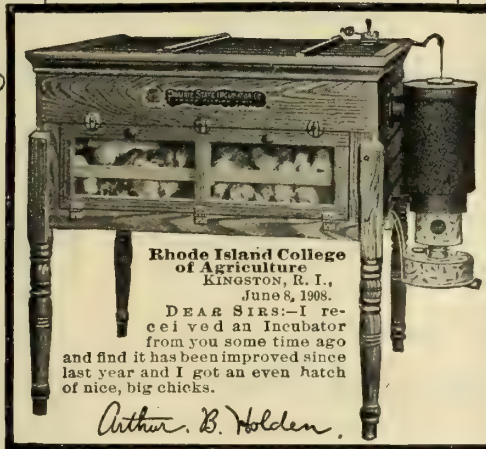 PRAIRIE STATE INCUBATOR CO
Rhode Island College
of Agriculture
KINGSTON, R. I.,
June 8, 1908.
DEAR SIRS:—I re-
cei ved an Incubator
from you some time ago
and find it has been improved since
last year and I got an even hatch
of nice, big chicks.
Arthur. B. Holden.